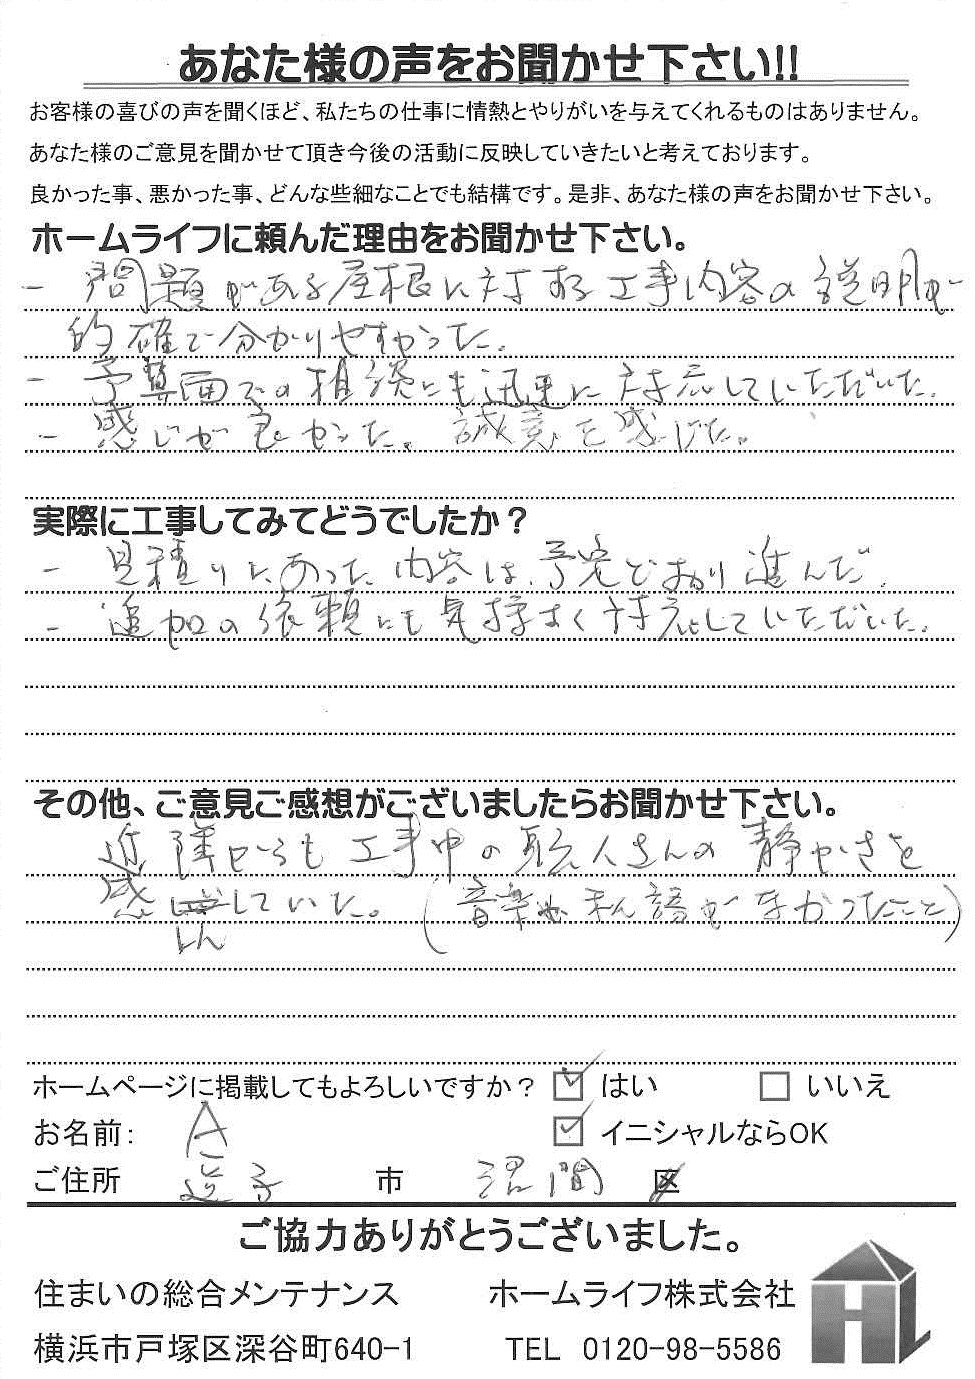 あなた様の声をお聞かせ下さい!!
お客様の喜びの声を聞くほど、私たちの仕事に情熱とやりがいを与えてくれるものはありません。
あなた様のご意見を聞かせて頂き今後の活動に反映していきたいと考えております。
良かった事、悪かった事、どんな些細なことでも結構です。是非、あなた様の声をお聞かせ下さい。
ホームライフに頼んだ理由をお聞かせ下さい。
- 問題がある屋根に対する工事内容の説明が
的確で分かりやすかった。
- 予算面での相談にも迅速に対応していただいた。
- 感じが良かった。誠意を感じた。
実際に工事してみてどうでしたか？
- 見積りにあった内容は、予定どおり進んだ。
- 追加の依頼にも気持よく対応していただいた。
その他、ご意見ご感想がございましたらお聞かせ下さい。
近隣からも工事中の職人さんの静かさを
感心していた。(音楽や私語がなかったこと)
ホームページに掲載してもよろしいですか？ ☑ はい □ いいえ
お名前: A ☑ イニシャルならOK
ご住所 逗子 市 沼間 区
ご協力ありがとうございました。
住まいの総合メンテナンス ホームライフ株式会社
横浜市戸塚区深谷町640-1 TEL 0120-98-5586